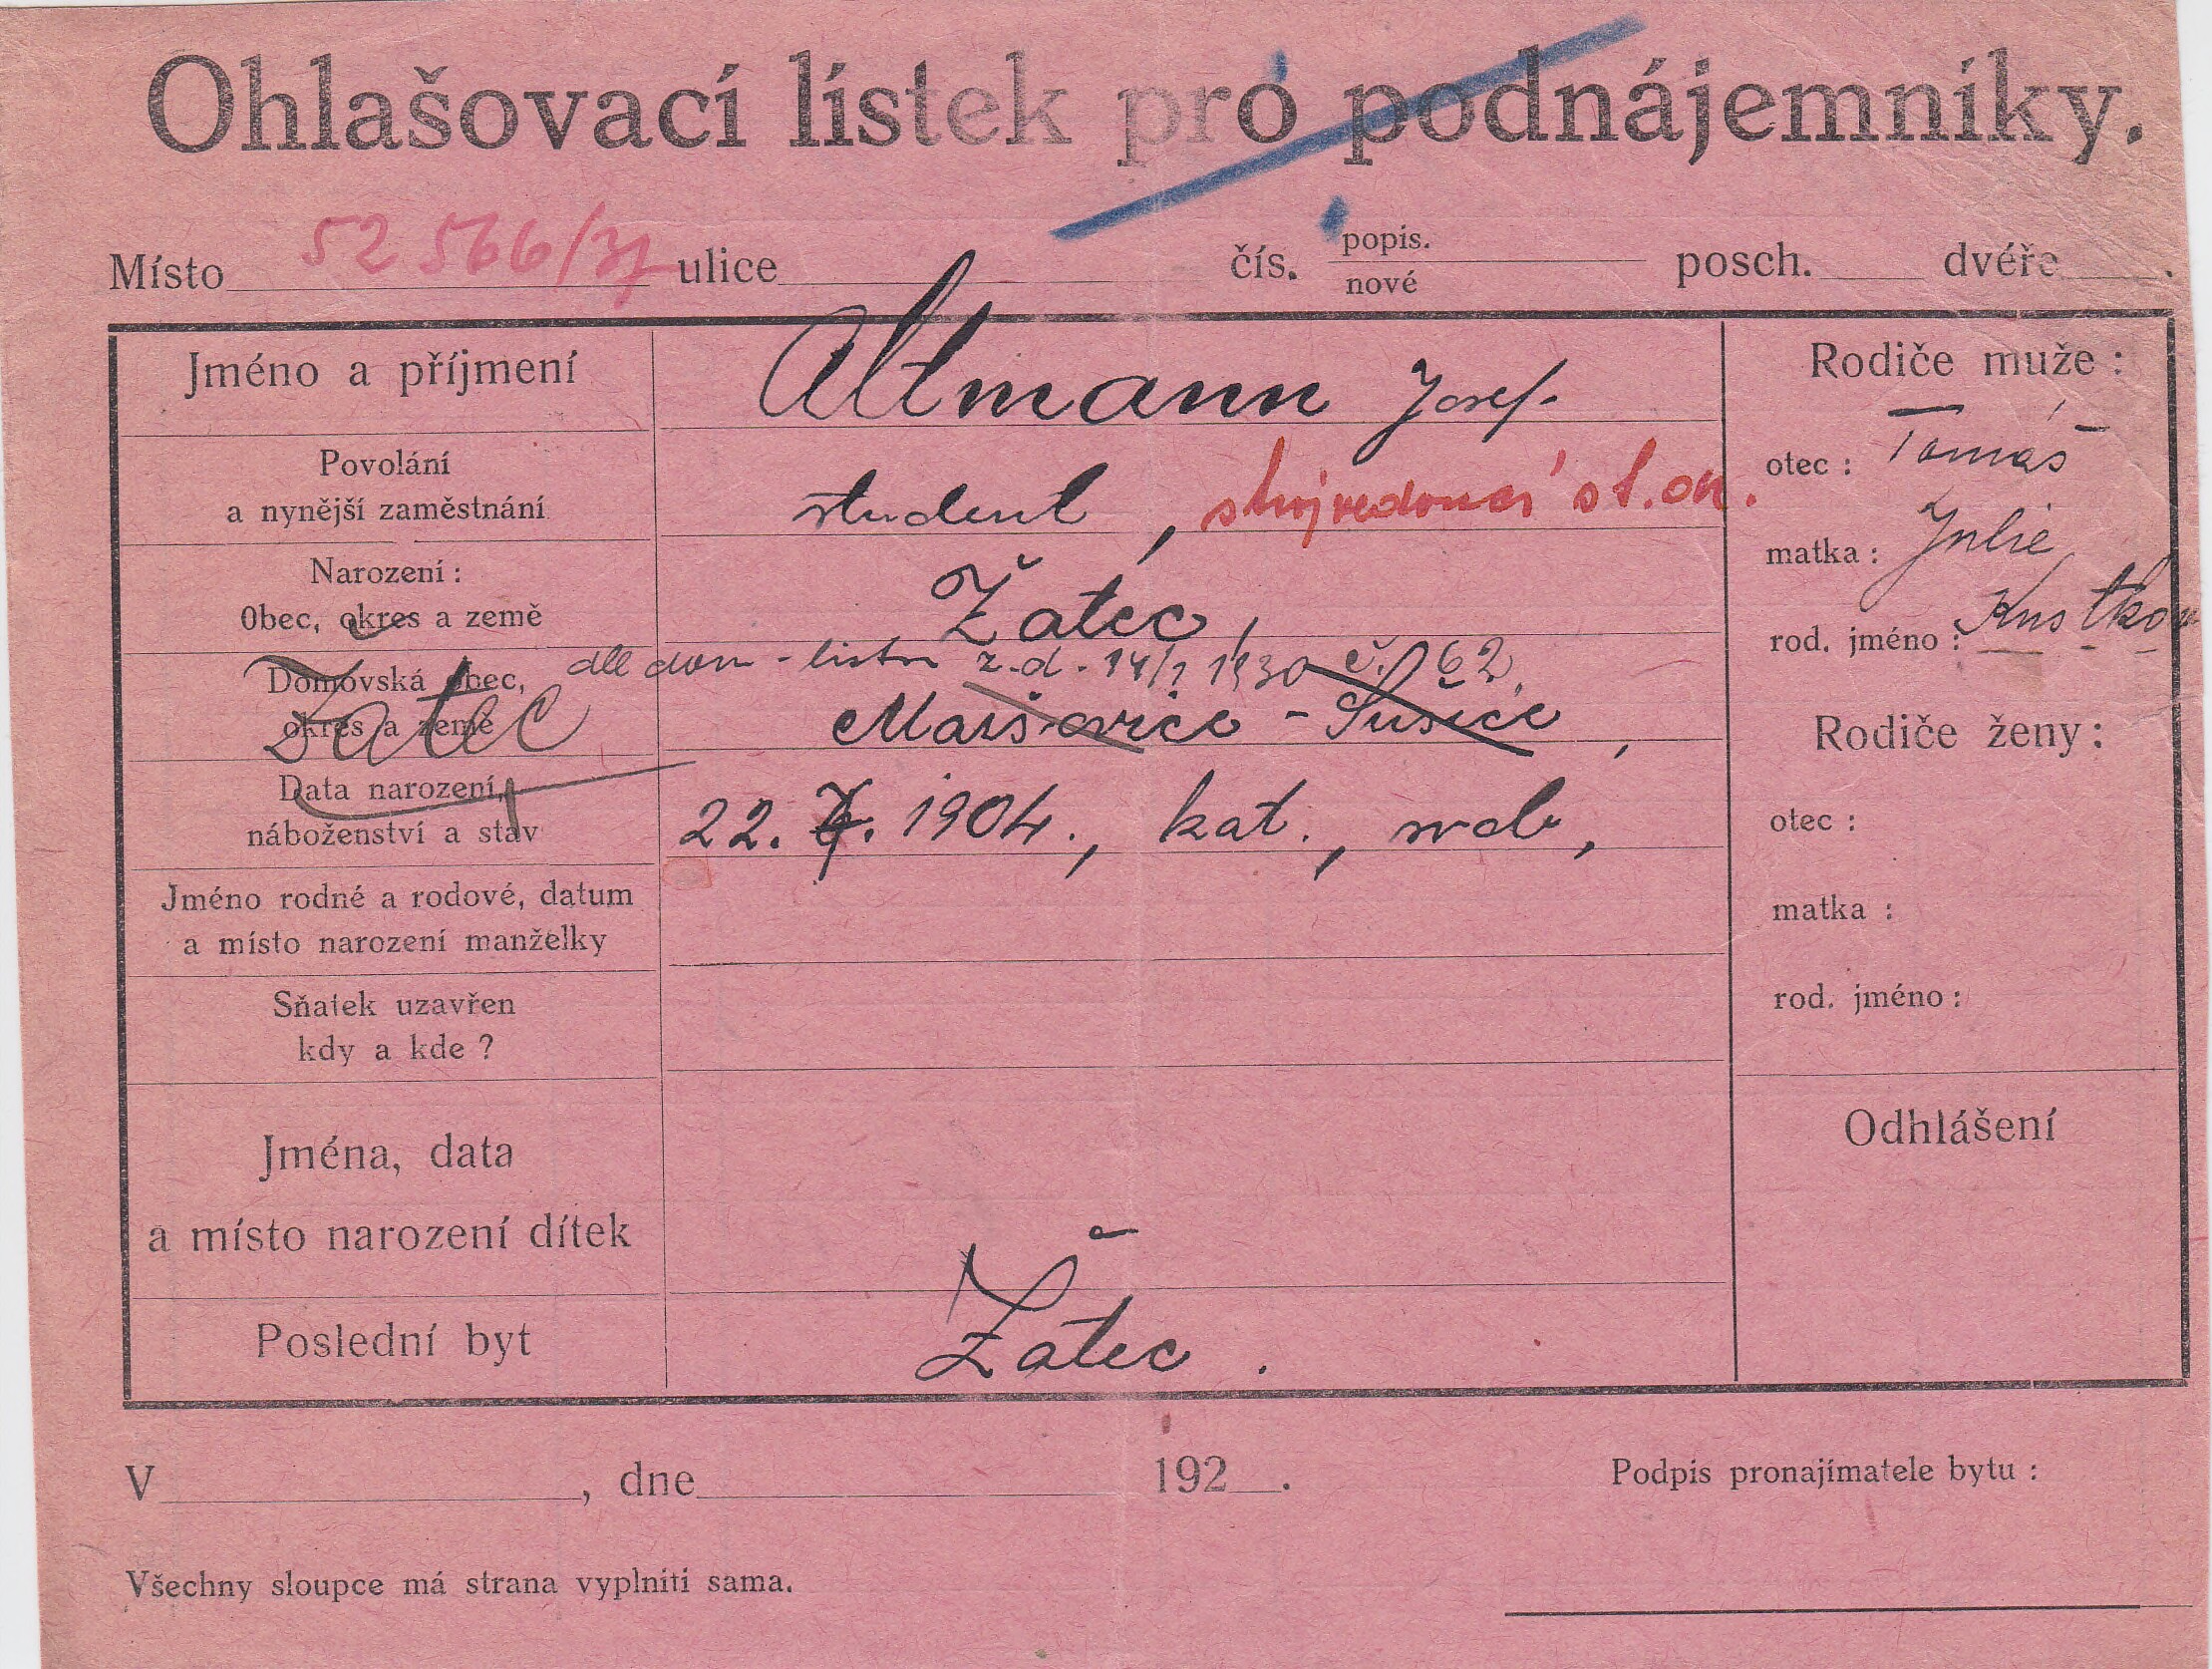 Ohlašovací lístek pro podnájemníky.
52 566/31
Místo ulice čís. popis. nové posch. dvéře .
Jméno a příjmení Altmann Josef.
Povolání
a nynější zaměstnání student, strojvedoucí st.
Narození:
Obec, okres a země Žatec,
dle dom-listu z.d. 14/1 1930 č. 62
Domovská obec,
okres a země Žatec Maršovice - Sušice,
Data narození,
náboženství a stav 22. 1904., kat., svob,
Jméno rodné a rodové, datum
a místo narození manželky
Sňatek uzavřen
kdy a kde ?
Jména, data
a místo narození dítek
Poslední byt Žatec .
Rodiče muže :
otec : Tomáš
matka : Julie
rod. jméno :
Rodiče ženy :
otec :
matka :
rod. jméno :
Odhlášení
V , dne 192 .
Podpis pronajímatele bytu :
Všechny sloupce má strana vyplniti sama.